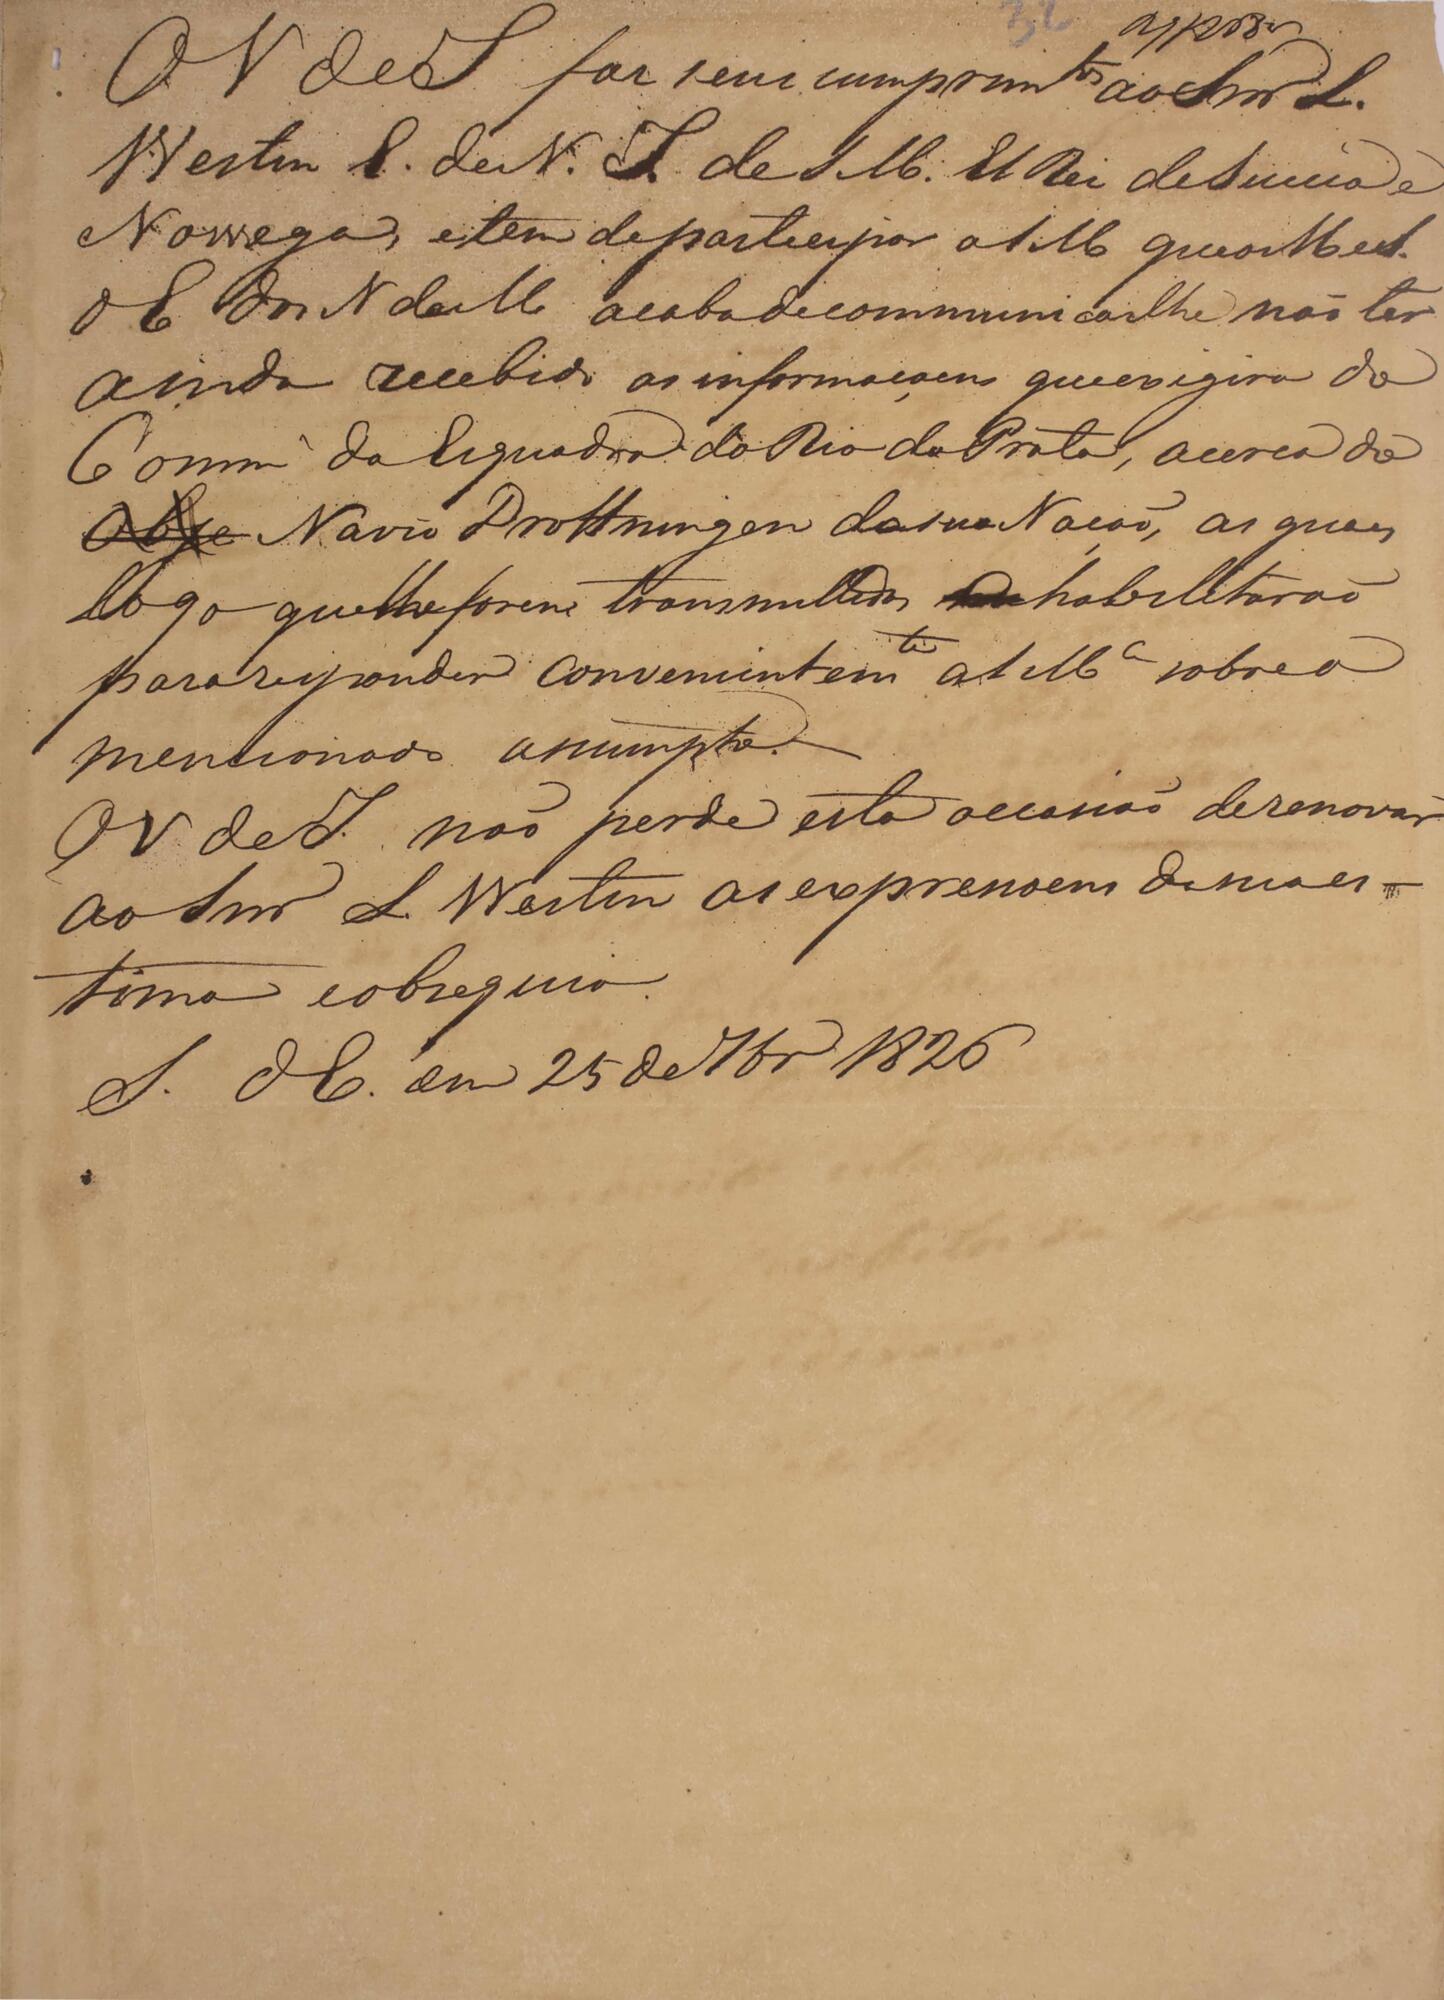 32
O V de S faz seus cumprim.tos ao Snr L.
Westin E. de N. I. de S M. El Rei de Suecia e
Norvega, e tem de participar a S M que o M e S.
d E dos N da M acaba de communicar lhe não ter
ainda recebido as informaçoens que exigira do
Comm.e da Esquadra do Rio da Prata, acerca do
Navio Drottningen da sua Nação, as quaes
logo que lhe forem transmittidas habilitarão
para responder convenientem.te a S M.ce sobre o
mencionado assumpto.
O V de S. não perde esta occasião de renovar
ao Snr L Westin as expressoens da sua es-
tima e obsequio.
S. d E. em 25 de 7br 1826